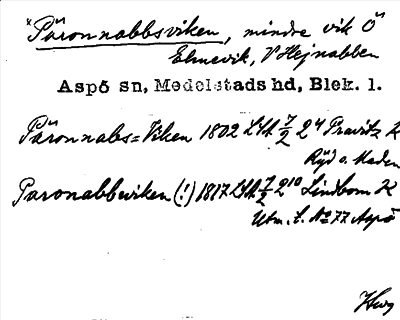 *Päronnabbsviken, mindre vik Ö
Elmevik, V Hejnabben
Aspö sn, Medelstads hd, Blek. l.
Päronnabs=Viken 1802 LSA 7/2 24 Pravitz K
Ryd o. Maden
Paronabbwiken (!) 1817 LSA 7/2 210 Lindbom K
Utm. t. No 77 Aspö